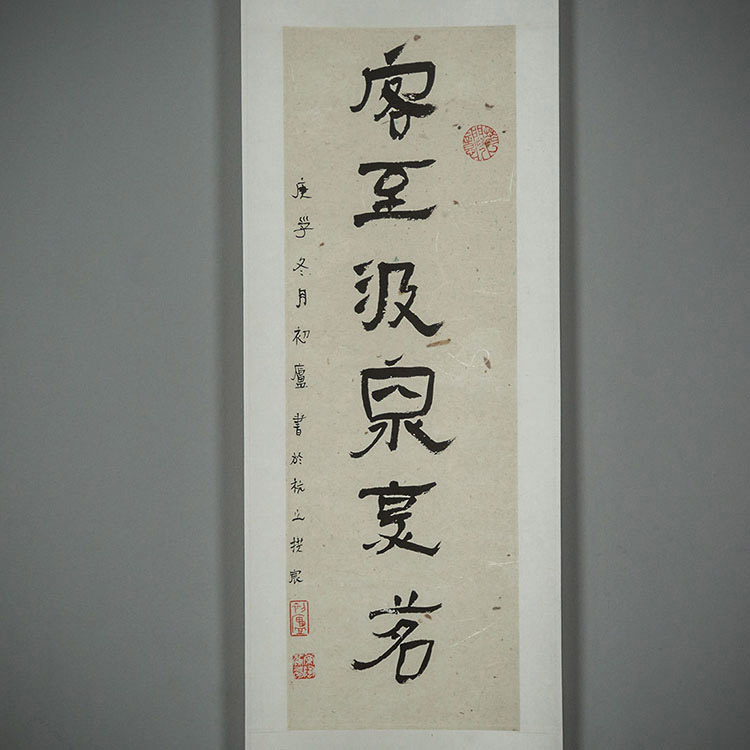 客至汲泉烹茗
庚子冬月初廬書於杭之